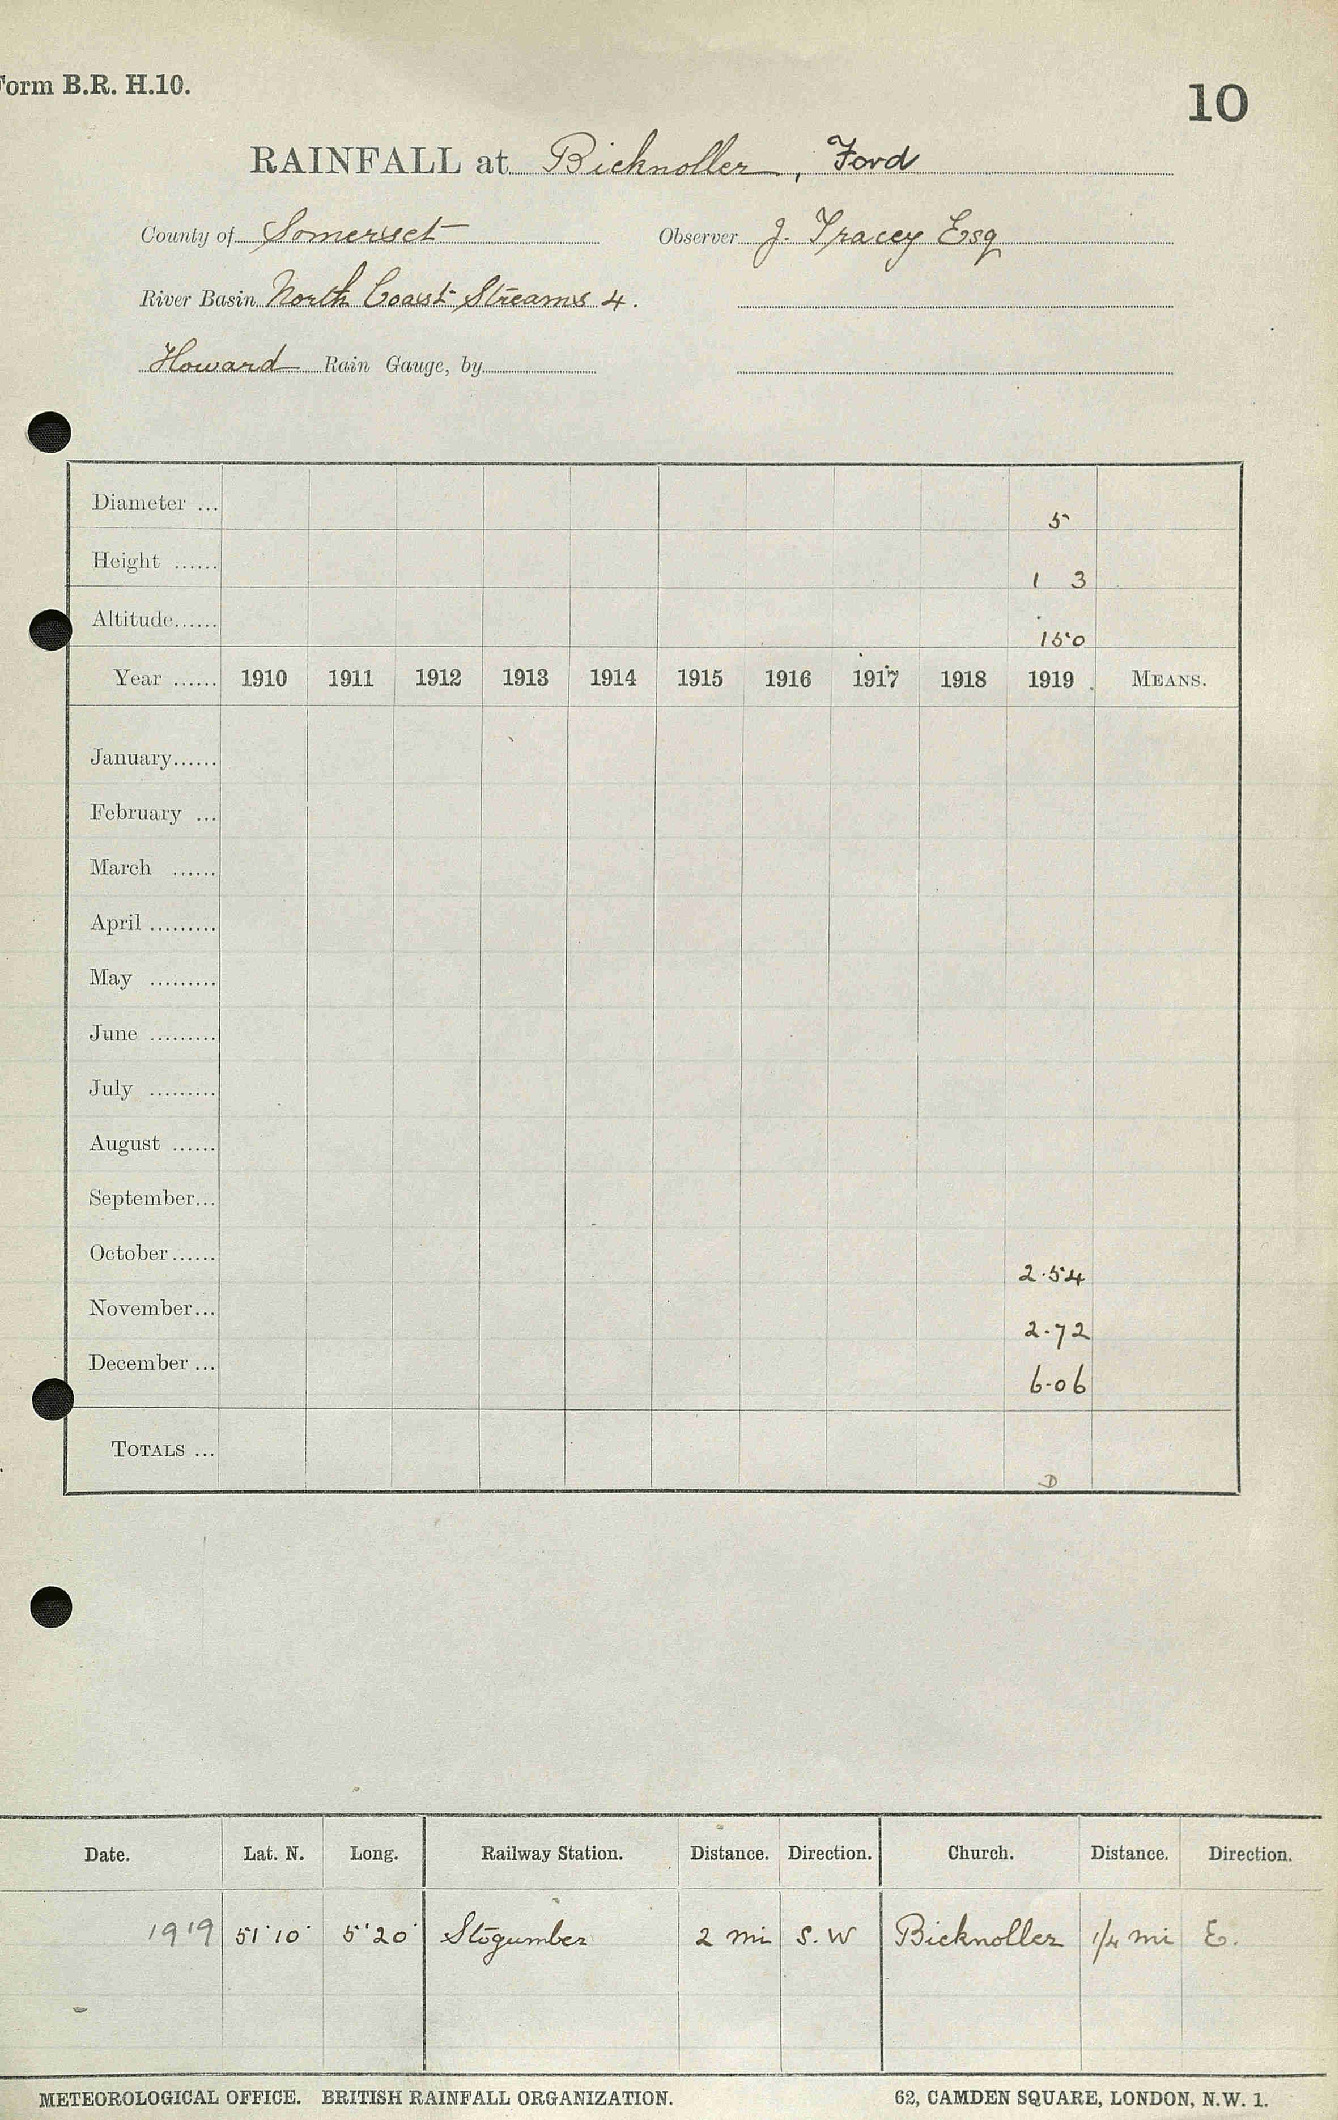 Form B.R. H.10.
10
RAINFALL at Bicknoller, Ford
County of Somerset Observer J. Tracey Esq
River Basin North Coast Streams 4.
Howard Rain Gauge, by
Diameter ... 5
Height ...... 1 3
Altitude...... 150
Year ...... 1910 1911 1912 1913 1914 1915 1916 1917 1918 1919 MEANS.
January......
February ...
March ......
April .........
May .........
June .........
July .........
August ......
September...
October...... 2.54
November... 2.72
December ... 6.06
TOTALS ... D
Date. Lat. N. Long. Railway Station. Distance. Direction. Church. Distance. Direction.
1919 51°10' 5°20' Stogumber 2 mi S.W Bicknoller 1/4 mi E.
METEOROLOGICAL OFFICE. BRITISH RAINFALL ORGANIZATION. 62, CAMDEN SQUARE, LONDON, N.W. 1.